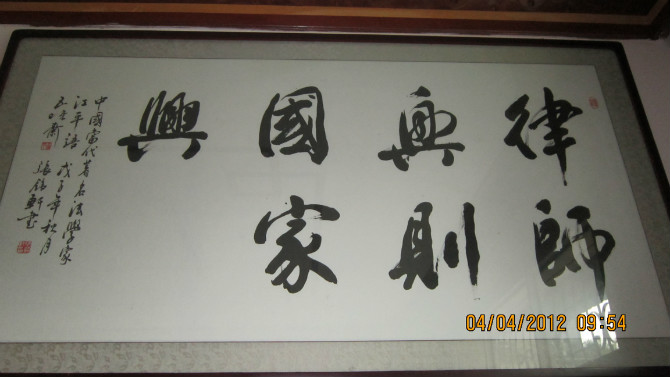 律師
興則
國家
興
中國當代著名法學家
江平語 戊子年秋月
軒書
04/04/2012 09:54